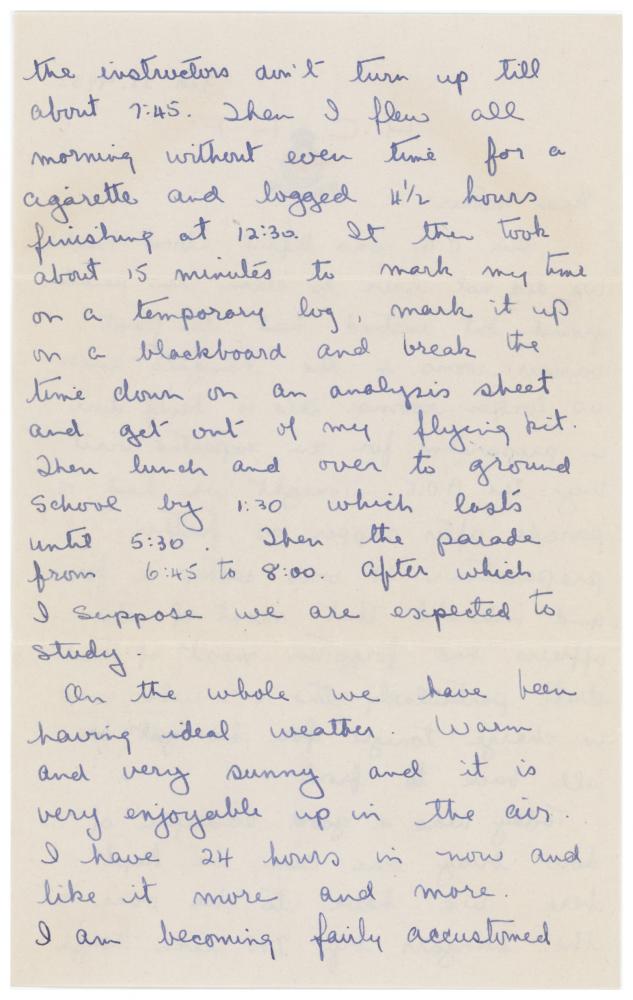 the instructors don't turn up till
about 7:45. Then I flew all
morning without even time for a
cigarette and logged 4 1/2 hours
finishing at 12:30. It then took
about 15 minutes to mark my time
on a temporary log, mark it up
on a blackboard and break the
time down on an analysis sheet
and get out of my flying kit.
Then lunch and over to ground
school by 1:30 which lasts
until 5:30. Then the parade
from 6:45 to 8:00. After which
I suppose we are expected to
study
On the whole we have been
having ideal weather. Warm
and very sunny and it is
very enjoyable up in the air.
I have 24 hours in now and
like it more and more.
I am becoming fairly accustomed